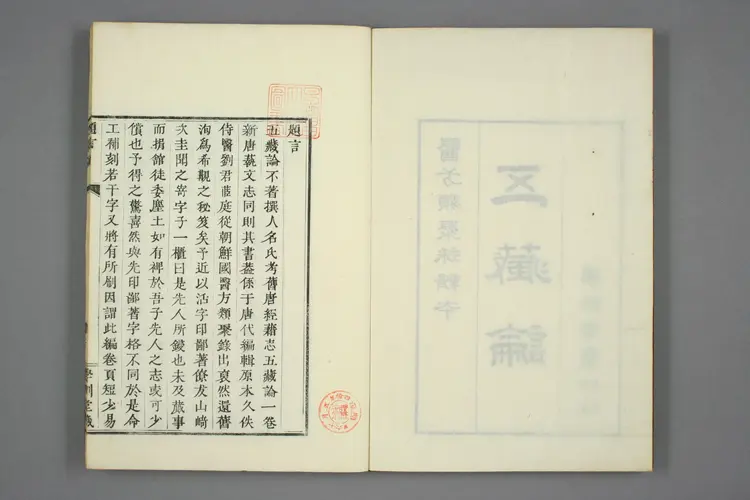 五藏論
醫方類聚採輯本
題言
五藏論不著撰人名氏考舊唐經籍志五藏論一卷
新唐藝文志同則其書蓋係于唐代編輯原本久佚
侍醫劉君茝庭從朝鮮國醫方類聚錄出裒然還舊
洵爲希觀之秘笈矣予近以活字印鄙著僚友山崎
次圭聞之寄字子一櫃曰是先人所鐫也未及蕆事
而捐館徒委塵土如有裨於吾子先人之志或可少
償也予得之驚喜然與先印鄙著字格不同於是命
工補刻若干字又將有所刷因謂此編卷頁短少易
題言
學訓堂藏